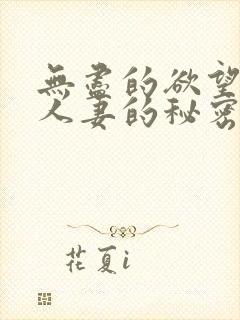 無盡的欲望
人妻的秘密
花夏i